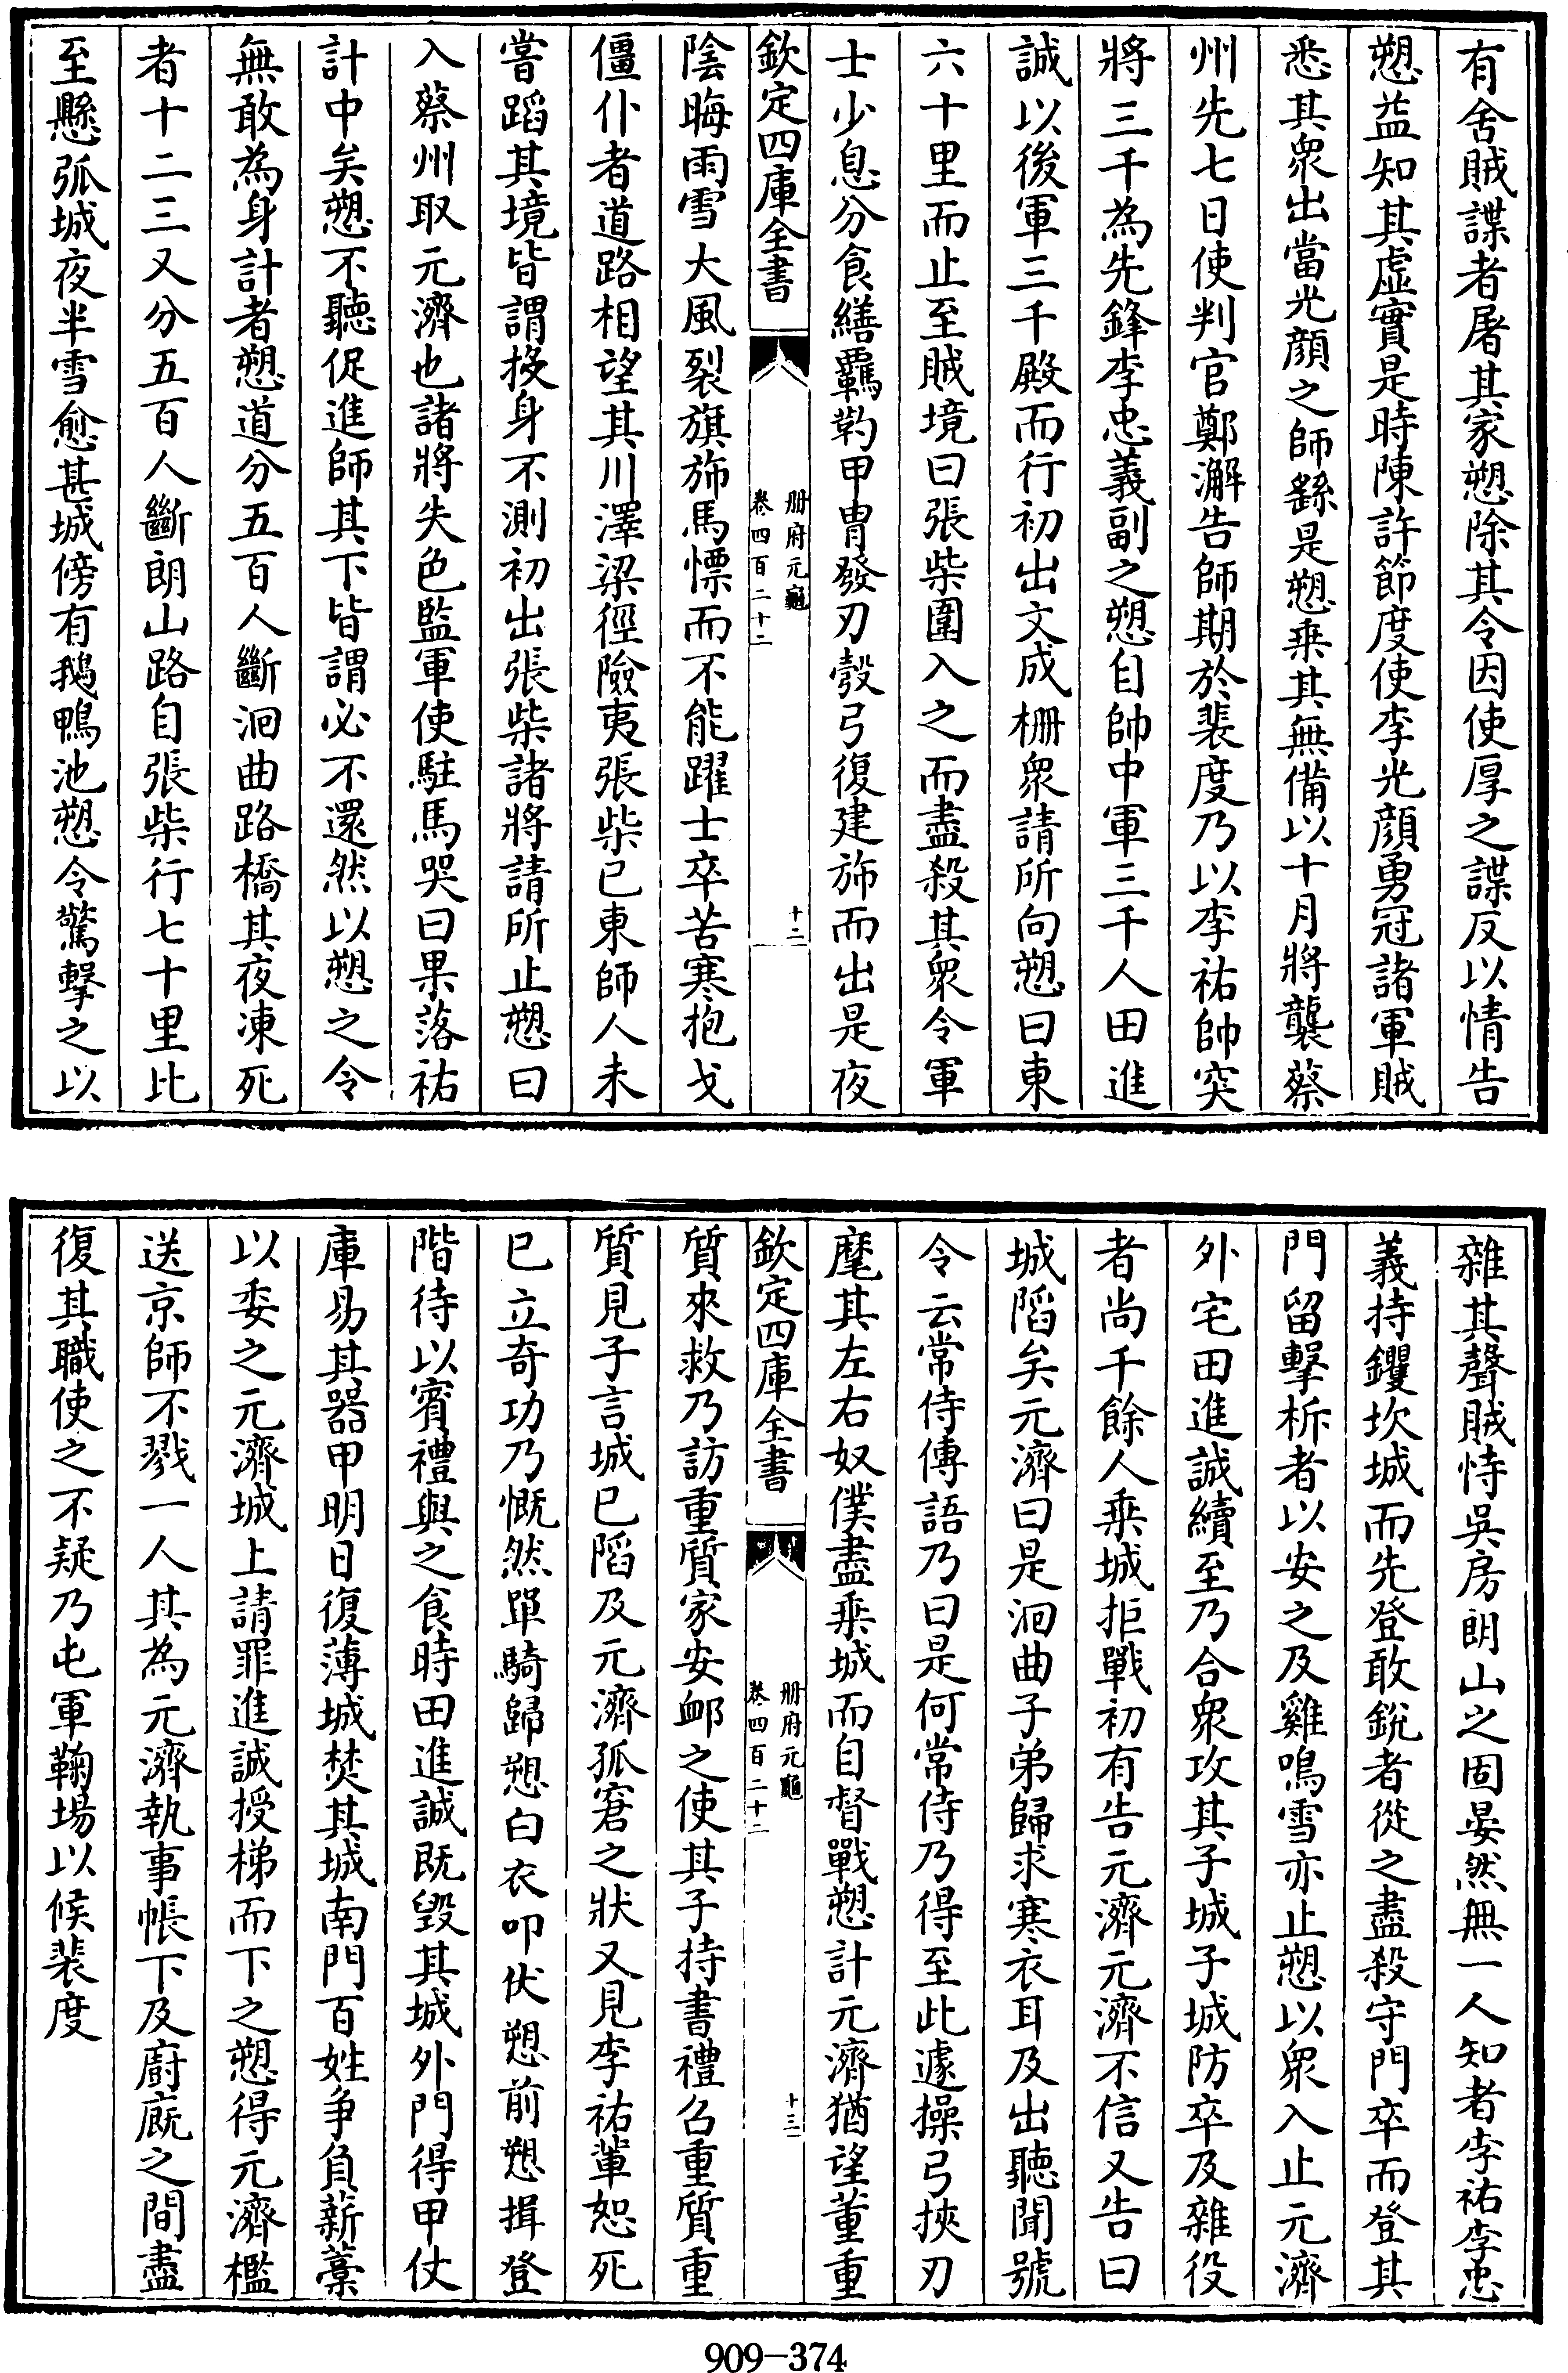 有舍賊諜者屠其家愬除其令因使厚之諜反以情告
愬益知其虚實是時陳許節度使李光顔勇冠諸軍賊
悉其衆出當光顔之師繇是愬乗其無備以十月將襲蔡
州先七日使判官鄭澥告師期於裴度乃以李祐帥突
將三千為先鋒李忠義副之愬自帥中軍三千人田進
誠以後軍三千殿而行初出文成栅衆請所向愬曰東
六十里而止至賊境曰張柴圍入之而盡殺其衆令軍
士少息分食繕羈靮甲胄發刃彀弓復建斾而出是夜
欽定四庫全書
册府元龜
卷四百二十二
十二
陰晦雨雪大風裂旗斾馬慄而不能躍士卒苦寒抱戈
僵仆者道路相望其川澤梁徑險夷張柴已東師人未
嘗蹈其境皆謂投身不測初出張柴諸將請所止愬曰
入蔡州取元濟也諸將失色監軍使駐馬哭曰果落祐
計中矣愬不聽促進師其下皆謂必不還然以愬之令
無敢為身計者愬道分五百人斷洄曲路橋其夜凍死
者十二三又分五百人斷朗山路自張柴行七十里比
至懸弧城夜半雪愈甚城傍有鵝鴨池愬令驚擊之以
雜其聲賊恃吳房朗山之固晏然無一人知者李祐李忠
義持钁坎城而先登敢銳者從之盡殺守門卒而登其
門留擊柝者以安之及雞鳴雪亦止愬以衆入止元濟
外宅田進誠續至乃合衆攻其子城子城防卒及雜役
者尚千餘人乗城拒戰初有告元濟元濟不信又告曰
城陷矣元濟曰是洄曲子弟歸求寒衣耳及出聽聞號
令云常侍傳語乃曰是何常侍乃得至此遽操弓挾刃
麾其左右奴僕盡乗城而自督戰愬計元濟猶望董重
欽定四庫全書
册府元龜
卷四百二十二
十三
質來救乃訪重質家安䘏之使其子持書禮召重質重
質見子言城已陷及元濟孤窘之狀又見李祐軰恕死
已立奇功乃慨然單騎歸愬白衣叩伏愬前愬揖登
階待以賓禮與之食時田進誠既毁其城外門得甲仗
庫易其器甲明日復薄城焚其城南門百姓爭負薪藁
以委之元濟城上請罪進誠授梯而下之愬得元濟檻
送京師不戮一人其為元濟執事帳下及廚廐之間盡
復其職使之不疑乃屯軍鞠場以候裴度
909-374